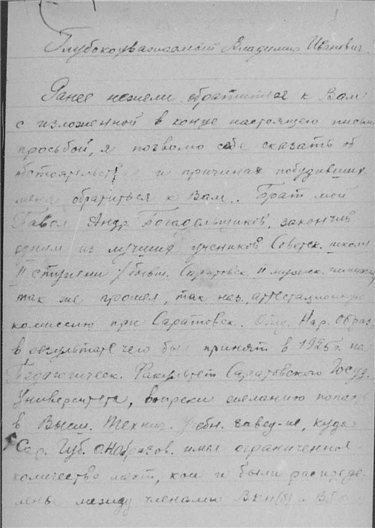 Глубокоуважаемый Владимир Иванович
Ранее нежели обратиться к Вам
с изложенной в конце настоящего письма
просьбой, я позволю себе сказать об
обстоятельств и причинах побудивших
меня обратиться к Вам. Брат мой
Павел Андр. Богадельщиков, закончив
одним из лучших учеников Советск. школу
II ступени Саратовск.
так же прошел, так наз. аттестационную
комиссию при Саратовск. Отд. Нар. Образ.
в результате чего был принят в 1926 г. на
Педагогическ. Факультет Саратовского Госуд.
Университета, вопреки желанию попасть
в Высш. Технич. Учебн. Завед-ие, куда
Сар. Губ. имел ограниченное
количество мест, кои и были распреде-
лены между членами